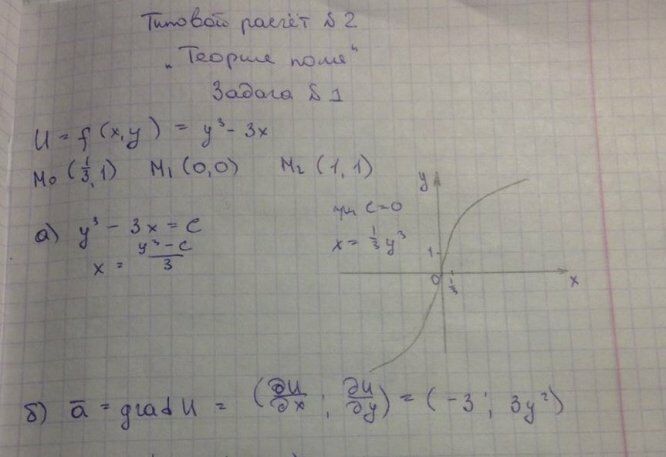 Типовой расчёт №2
„Теория поля“
Задача №1
U = f(x,y) = y³ - 3x
M₀ (1/3, 1) M₁ (0,0) M₂ (1, 1)
а) y³ - 3x = C
x = (y³ - C)/3
при C=0
x = 1/3 y³
y
1
0 1/3 x
б) a̅ = grad U = (∂U/∂x ; ∂U/∂y) = (-3 ; 3y²)